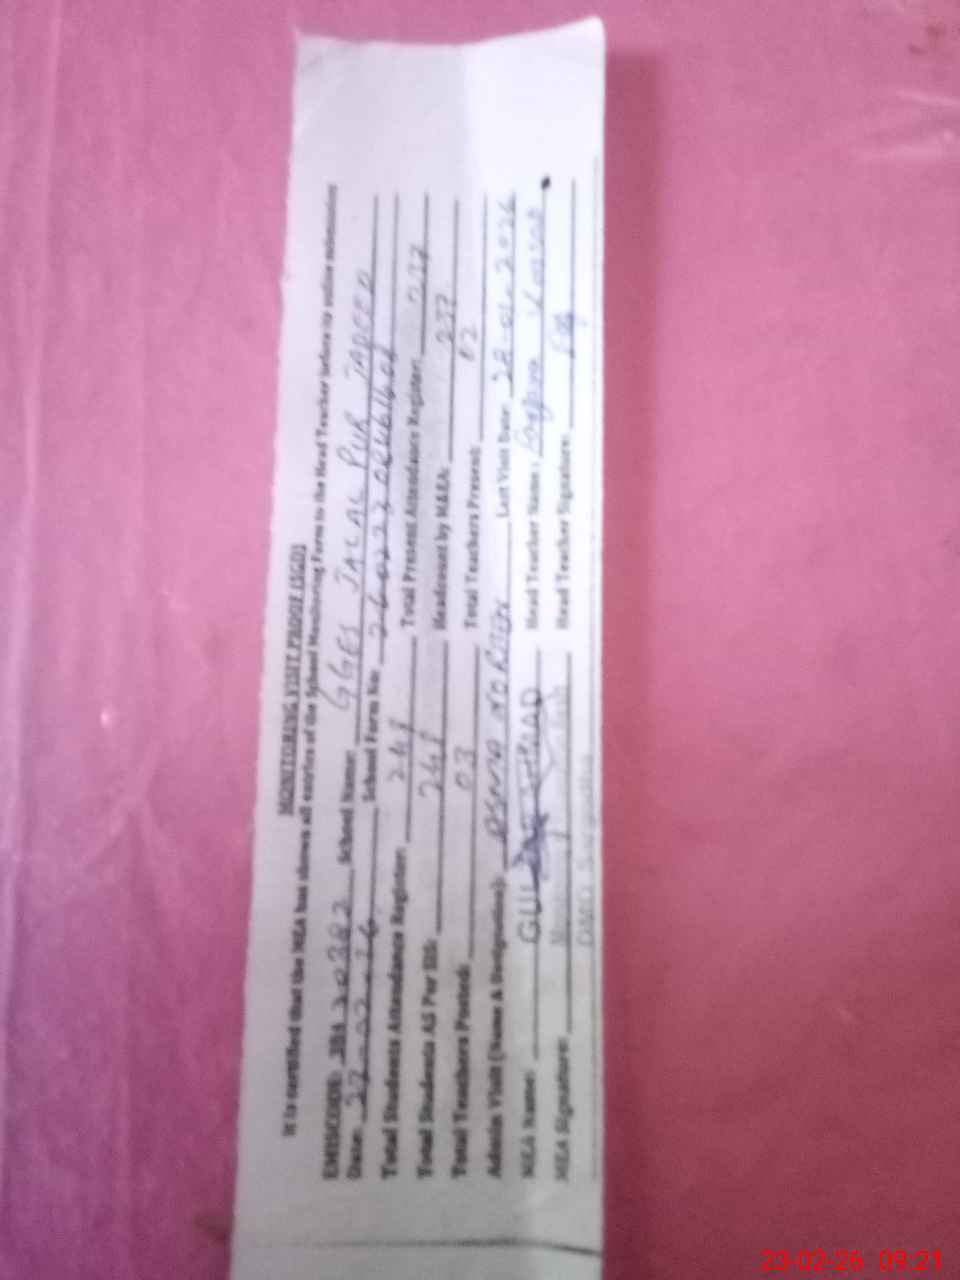 MONITORING VISIT PROOF (SGD)
It is certified that the MEA has shown all entries of the School Monitoring Form to the Head Teacher before its online submission
EMISCODE: 384 20282 School Name: GGES JALAL PUR JADEED
Date: 27-02-26 School Form No:
Total Students Attendance Register: 241 Total Present Attendance Register: 237
Total Students AS Per SIS: 241 Headcount by M&EA: 237
Total Teachers Posted: 03 Total Teachers Present: 02
Admin Visit (Name & Designation): Last Visit Date: 28-01-2026
MEA Name: Head Teacher Name:
MEA Signature: Head Teacher Signature:
DMO Sargodha
23-02-26 09:21